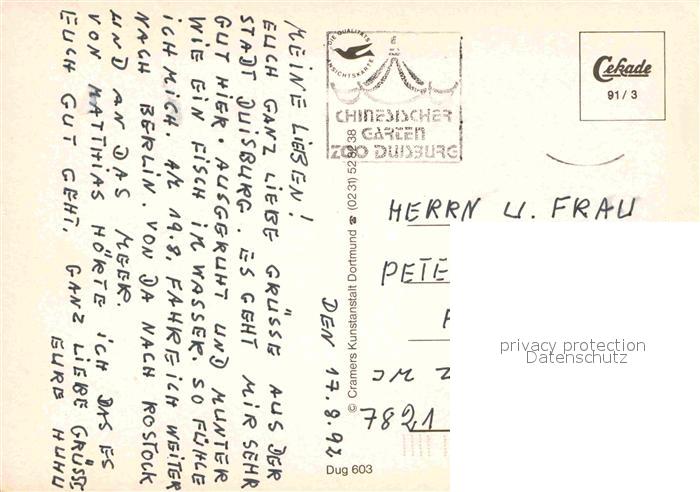 MEINE LIEBEN!
EUCH GANZ LIEBE GRÜSSE AUS DER
STADT DUISBURG. ES GEHT MIR SEHR
GUT HIER. AUSGERUHT UND MUNTER
WIE EIN FISCH IM WASSER. SO FÜHLE
ICH MICH. AM 19.8. FAHRE ICH WEITER
NACH BERLIN. VON DA NACH ROSTOCK
UND AN DAS MEER.
VON MATTHIAS HÖRTE ICH DAS ES
EUCH GUT GEHT. GANZ LIEBE GRÜSSE
EURE HUHU
DEN 17.8.92
DIE QUALITÄTS
ANSICHTSKARTE
CHINESISCHER
GARTEN
ZOO DUISBURG
© Cramers Kunstanstalt Dortmund ☎ (0231) 528238
Cekade
91/3
HERRN U. FRAU
PETE
IM
7821
privacy protection
Datenschutz
Dug 603